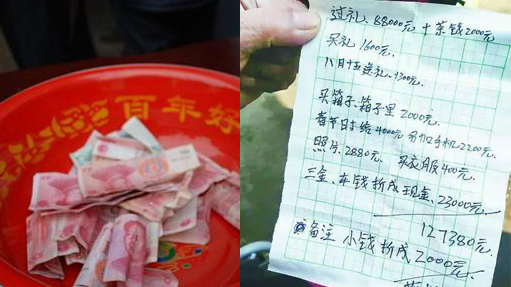 百年好
过礼、88000元 + 茶钱2000元
买礼 1600元、
八月十五送礼、1300元、
买箱子、箱子里 2000元、
春节日 给4000元 手机2200元、
照片、2880元、买衣服400元、
三金、本钱折成现金、23000元
127380元
备注 小钱折成
2000元